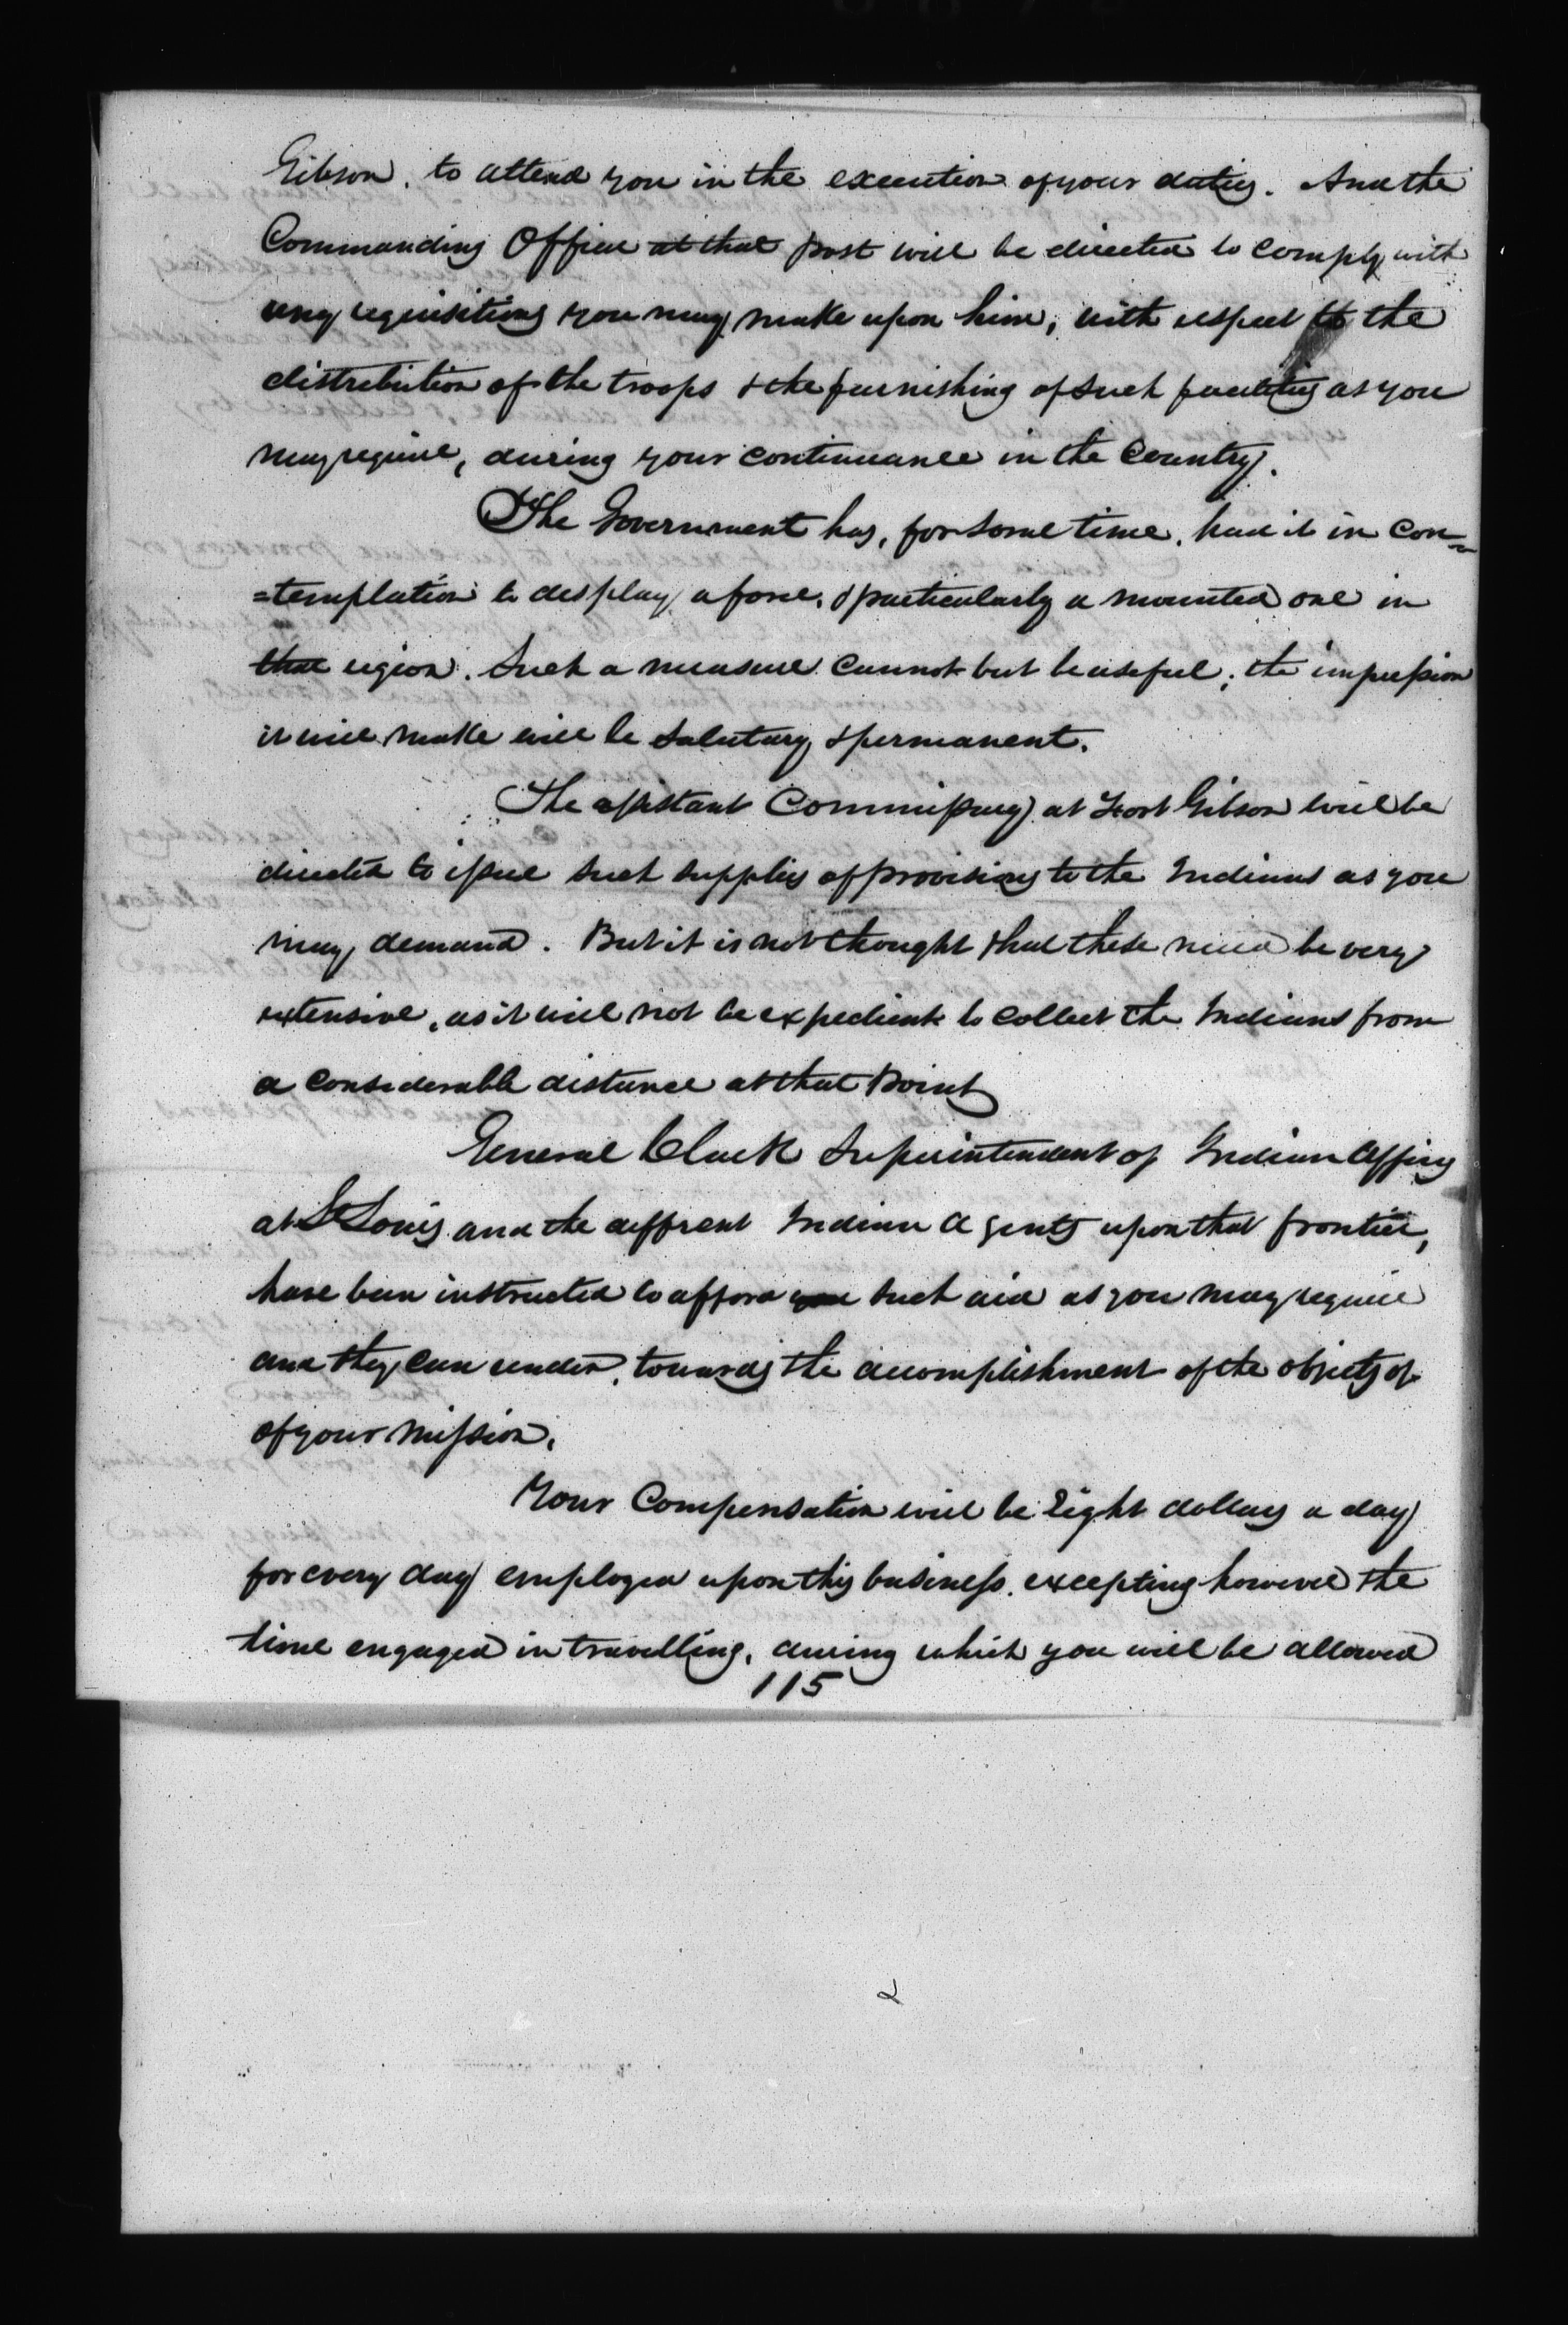 Gibson, to attend you in the execution of your duties. And the
Commanding Officer at that post will be directed to comply with
any requisitions you may make upon him, with respect to the
distribution of the troops & the furnishing of such facilities as you
may require, during your continuance in the Country.
The Government has, for some time, had it in con=
=templation to display a force, & particularly a mounted one in
that region. Such a measure cannot but be useful; the impression
it will make will be salutary & permanent.
The assistant Commissary at Fort Gibson will be
directed to issue such supplies of provisions to the Indians as you
may demand. But it is not thought that these need be very
extensive, as it will not be expedient to collect the Indians from
a considerable distance at that point
General Clark Superintendent of Indian Affairs
at St Louis and the diffrent Indian Agents upon that frontier,
have been instructed to afford you such aid as you may require
and they can render, towards the accomplishment of the objects of
of your mission.
Your Compensation will be Eight dollars a day
for every day employed upon this business, excepting however the
time engaged in travelling, during which you will be allowed
115
2